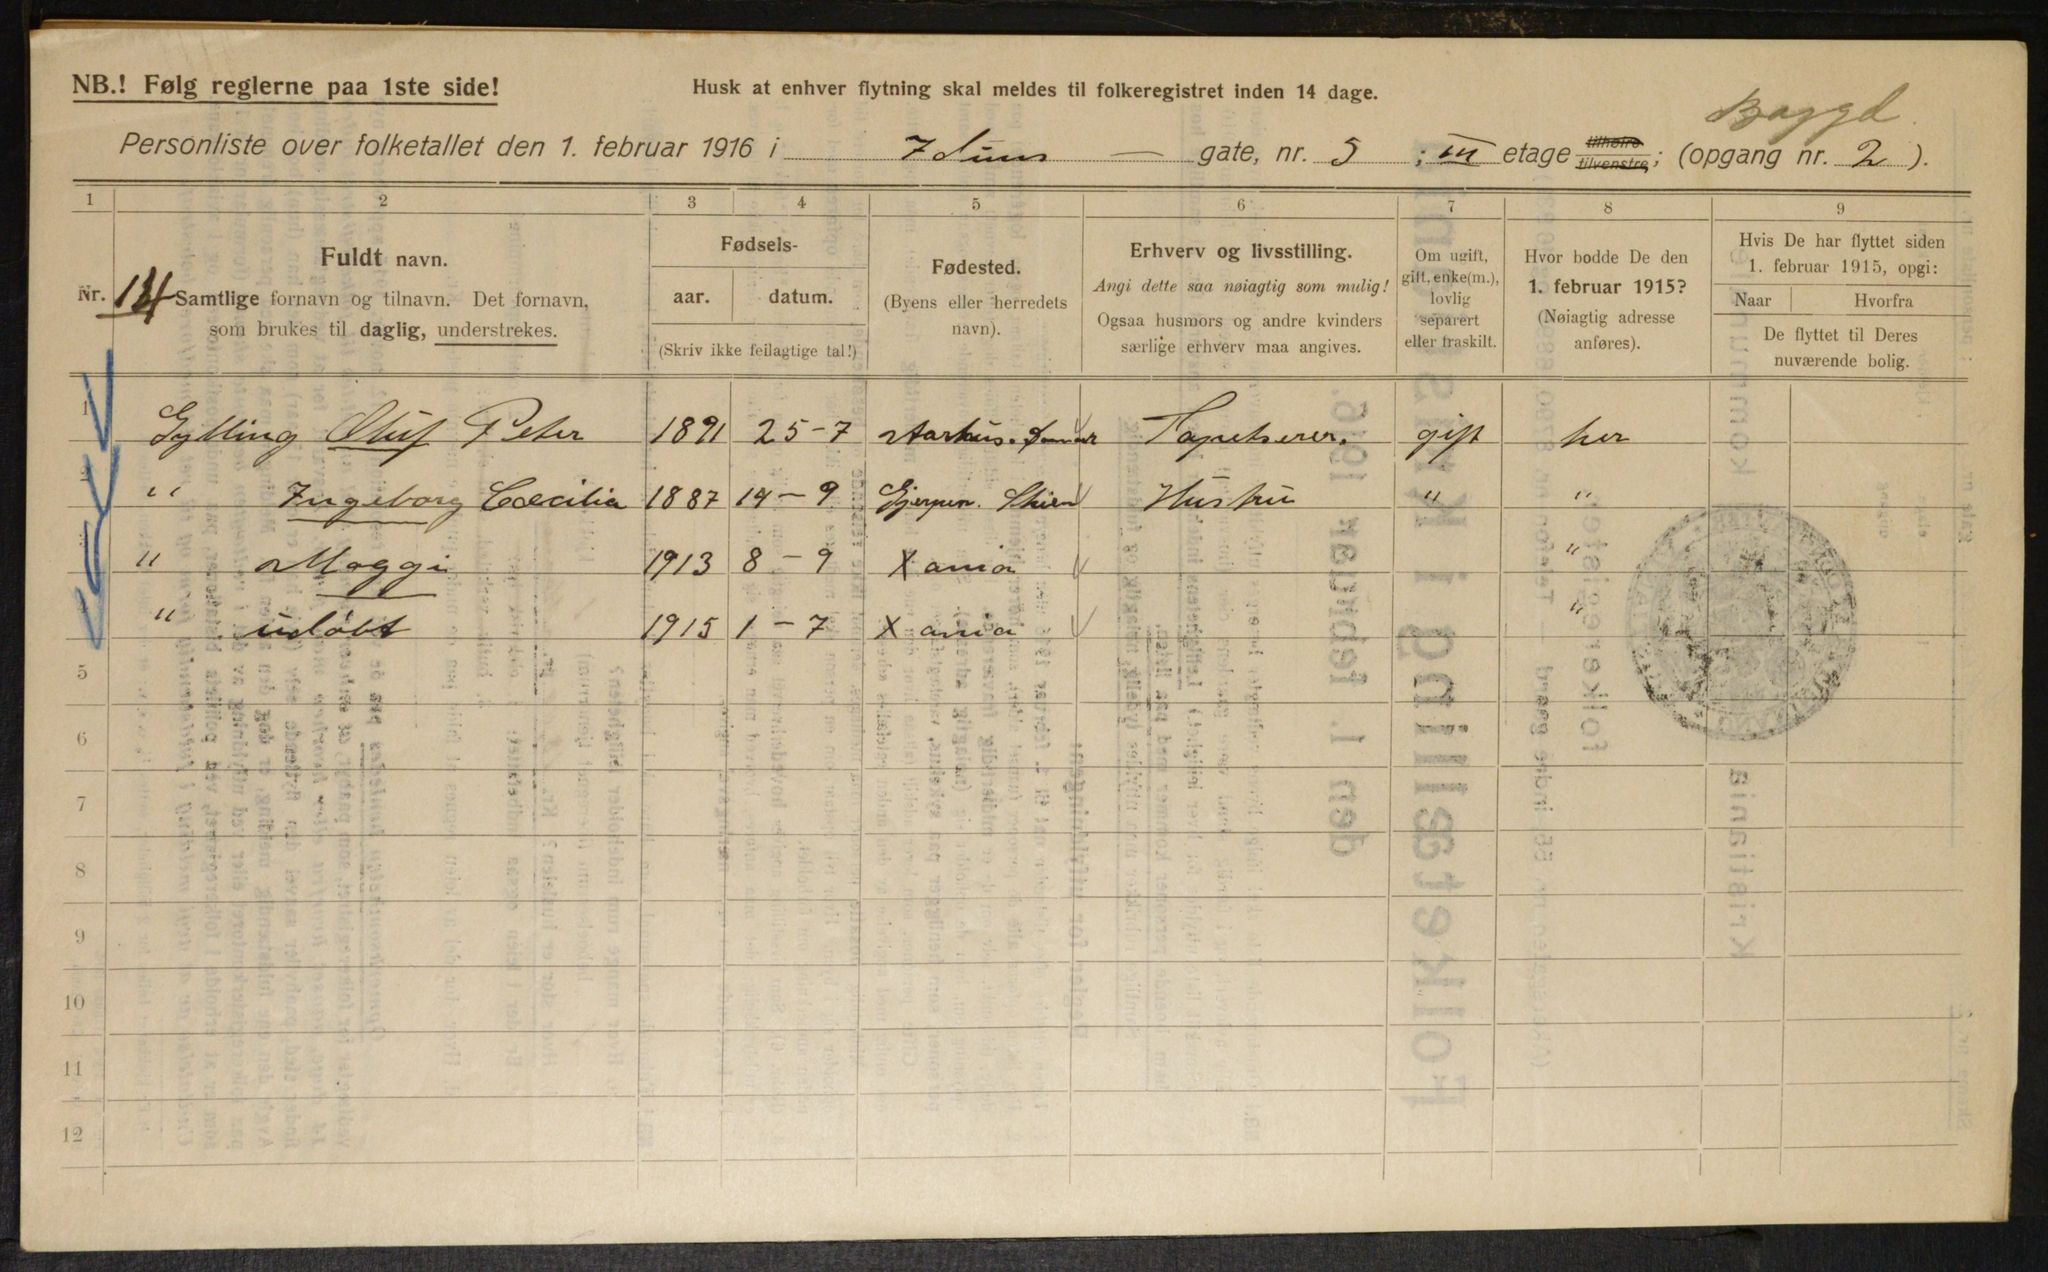 NB.! Følg reglerne paa 1ste side!
Husk at enhver flytning skal meldes til folkeregistret inden 14 dage.
Baggd
Personliste over folketallet den 1. februar 1916 i Iduns — gate, nr. 5 ; III etage tilhøire tilvenstre; (opgang nr. 2 ).
1 2 3 4 5 6 7 8 9
Nr. 14
Fuldt navn.
Samtlige fornavn og tilnavn. Det fornavn,
som brukes til daglig, understrekes.
Fødsels-
aar. datum.
(Skriv ikke feilagtige tal!)
Fødested.
(Byens eller herredets
navn).
Erhverv og livsstilling.
Angi dette saa nøiagtig som mulig!
Ogsaa husmors og andre kvinders
særlige erhverv maa angives.
Om ugift,
gift, enke(m.),
lovlig
separert
eller fraskilt.
Hvor bodde De den
1. februar 1915?
(Nøiagtig adresse
anføres).
Hvis De har flyttet siden
1. februar 1915, opgi:
Naar Hvorfra
De flyttet til Deres
nuværende bolig.
1 Gylling Oluf Peter 1891 25-7 Aarhus. Tapetserer. gift her
2 " Ingeborg Cæcilia 1887 14-9 Gjerpen. Skien Hustru " "
" Maggi 1913 8-9 Xania "
" udøbt 1915 1-7 Xania "
5
6
7
8
9
10
11
12